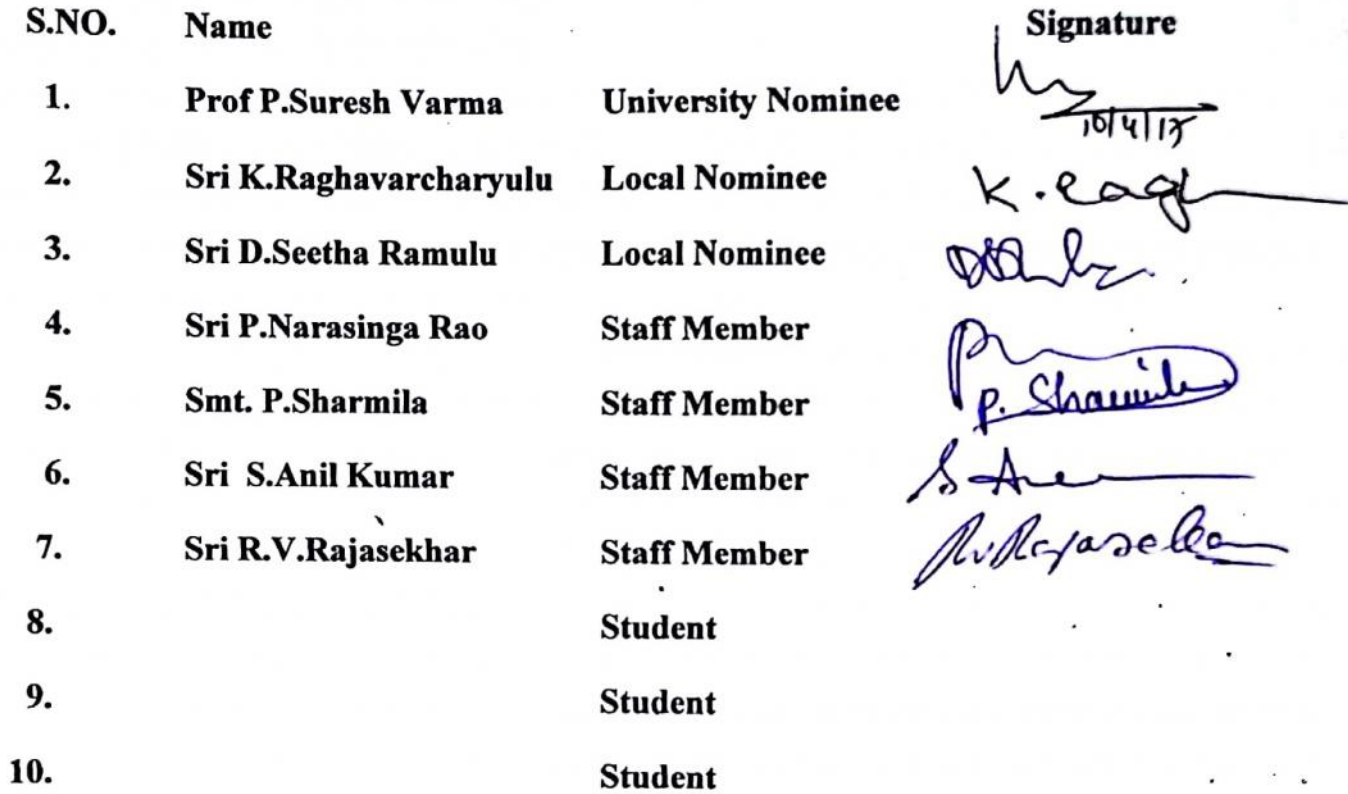 S.NO. Name Signature
1. Prof P.Suresh Varma University Nominee
10/4/17
2. Sri K.Raghavarcharyulu Local Nominee K. Ragh
3. Sri D.Seetha Ramulu Local Nominee
4. Sri P.Narasinga Rao Staff Member
5. Smt. P.Sharmila Staff Member P. Sharmila
6. Sri S.Anil Kumar Staff Member
7. Sri R.V.Rajasekhar Staff Member R.V.Rajasekhar
8. Student
9. Student
10. Student